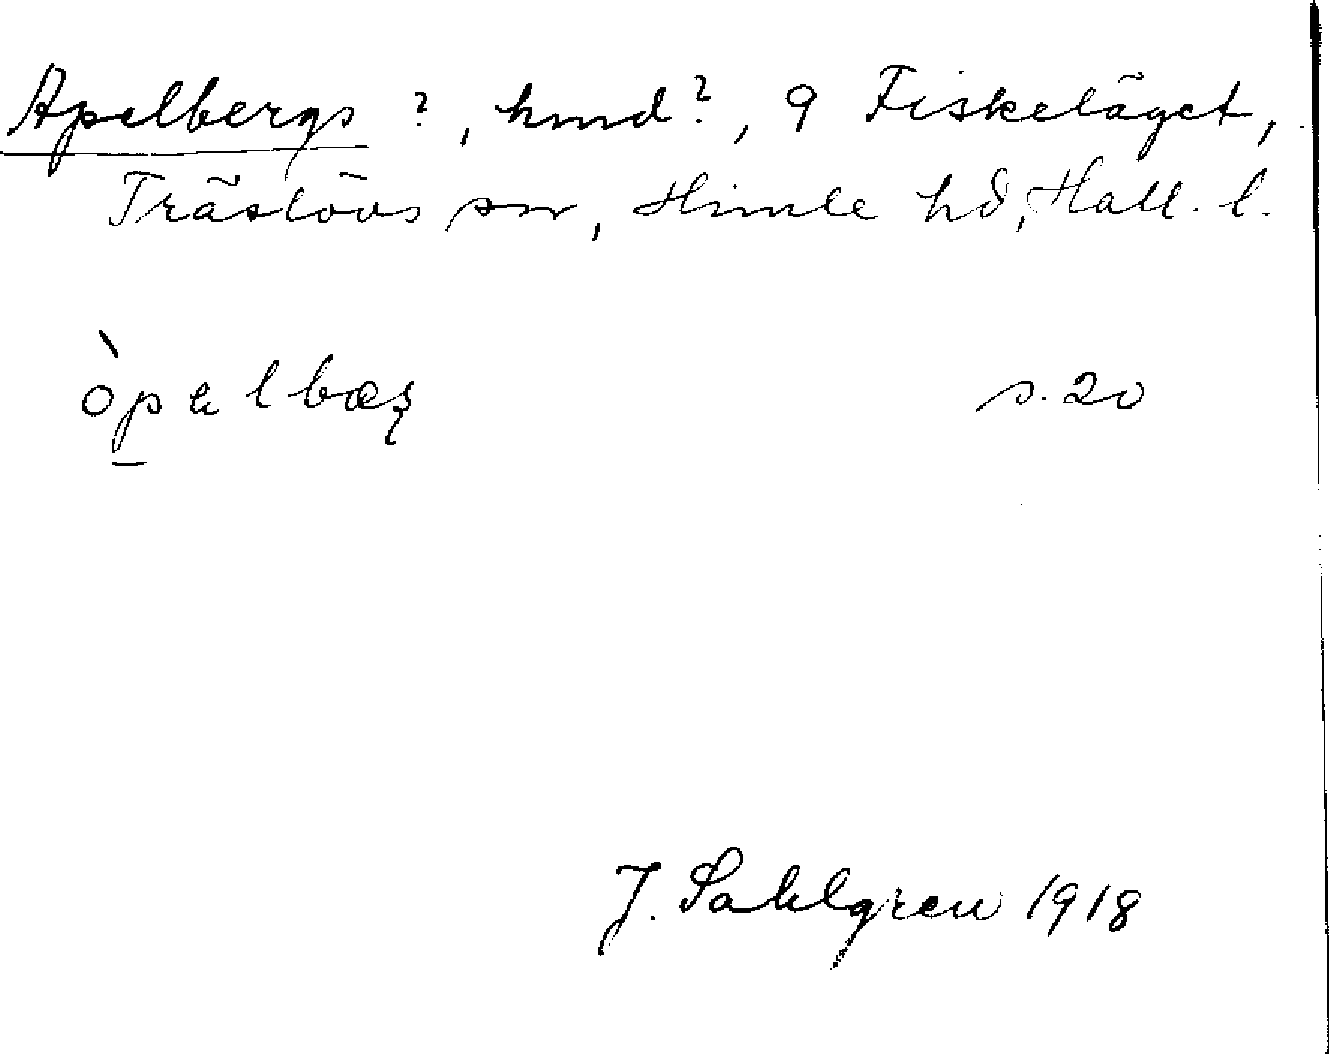 Apelbergs ?, hmd ?, 9 Fiskeläget,
Träslövs sn, Himle hd, Hall. l.
s. 20
J. Sahlgren 1918